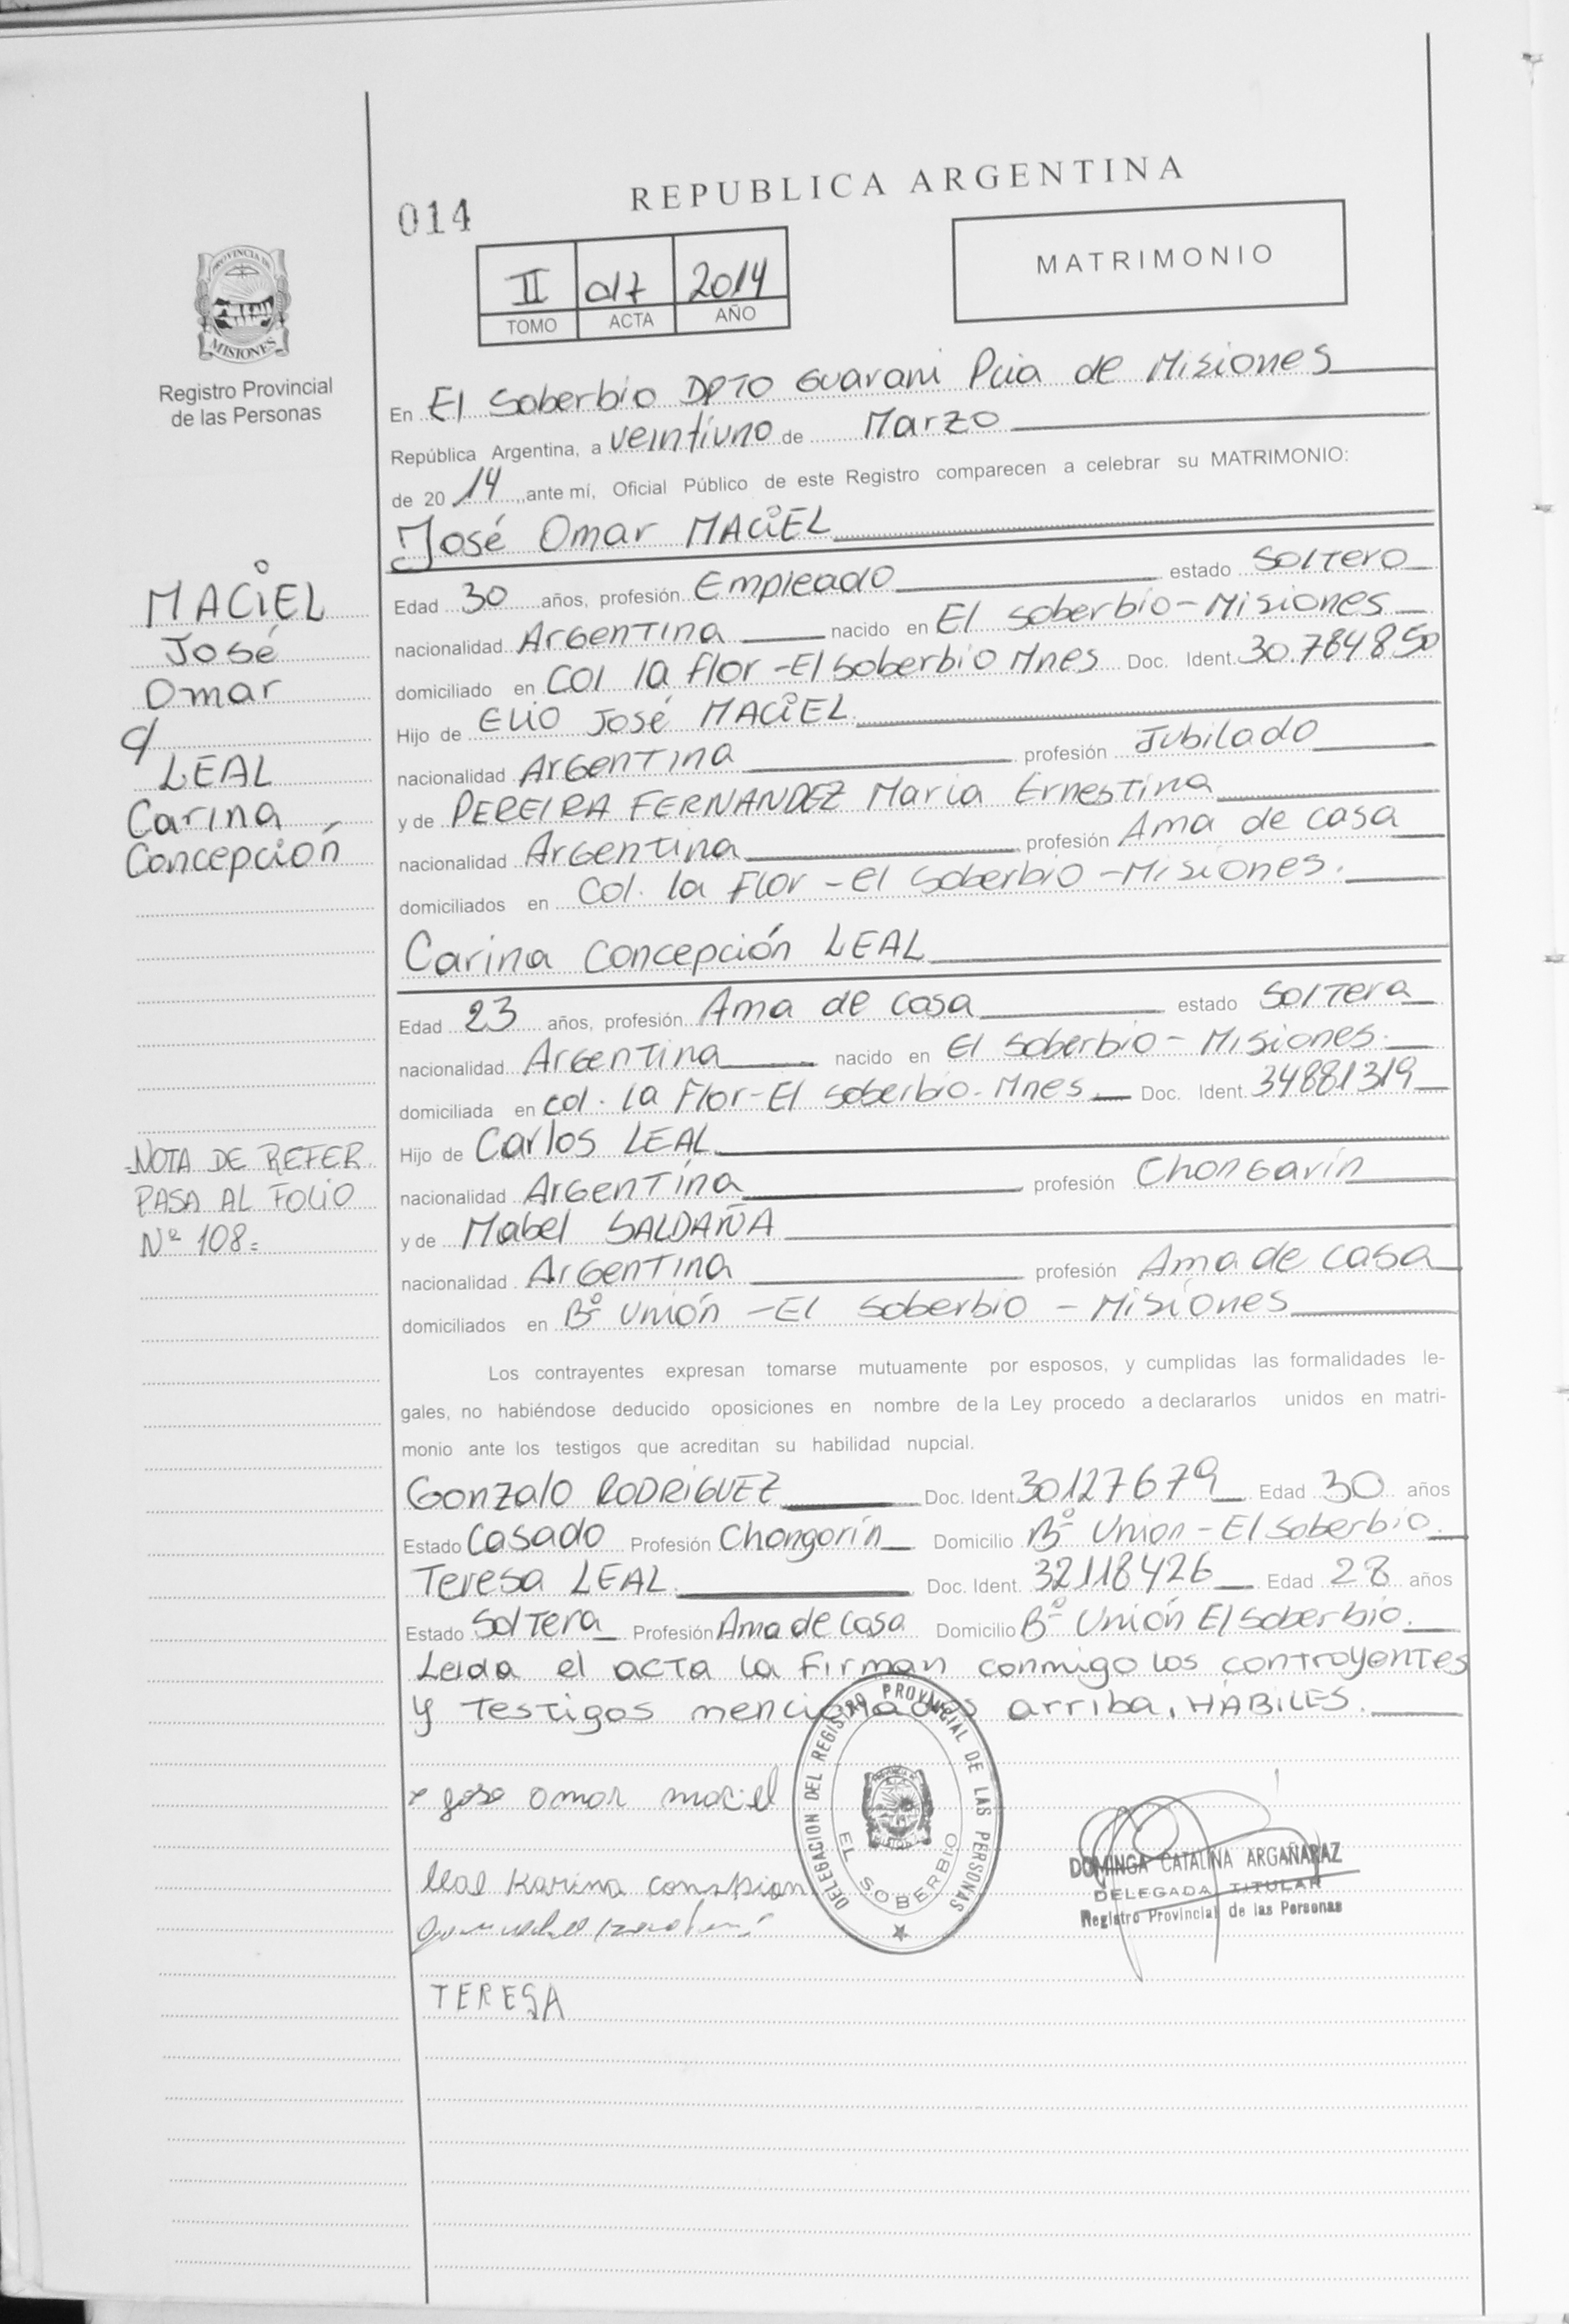 REPUBLICA ARGENTINA
014
II 017 2014
TOMO ACTA AÑO
MATRIMONIO
PROVINCIA DE
MISIONES
Registro Provincial
de las Personas
MACiEL
José
Omar
c/
LEAL
Carina
Concepción
NOTA DE REFER
PASA AL FOLIO
Nº 108=
En El Soberbio DPTO Guarani Pcia de Misiones
República Argentina, a veintiuno de Marzo
de 20 14, ante mí, Oficial Público de este Registro comparecen a celebrar su MATRIMONIO:
José Omar MACiEL
Edad 30 años, profesión Empleado estado Soltero
nacionalidad Argentina nacido en El Soberbio - Misiones
domiciliado en Col la flor - El Soberbio Mnes Doc. Ident. 30.784850
Hijo de Elio José MACiEL
nacionalidad Argentina profesión Jubilado
y de PEREIRA FERNANDEZ Maria Ernestina
nacionalidad Argentina profesión Ama de casa
domiciliados en Col. la Flor - el Soberbio - Misiones.
Carina Concepción LEAL
Edad 23 años, profesión Ama de casa estado Soltera
nacionalidad Argentina nacido en El Soberbio - Misiones.
domiciliada en col. la Flor - El Soberbio - Mnes Doc. Ident. 34881319
Hijo de Carlos LEAL
nacionalidad Argentina profesión Chongarín
y de Mabel SALDAÑA
nacionalidad Argentina profesión Ama de casa
domiciliados en Bº Unión - El Soberbio - Misiones
Los contrayentes expresan tomarse mutuamente por esposos, y cumplidas las formalidades le-
gales, no habiéndose deducido oposiciones en nombre de la Ley procedo a declararlos unidos en matri-
monio ante los testigos que acreditan su habilidad nupcial.
Gonzalo RODRiGUEZ Doc. Ident. 30127679 Edad 30 años
Estado Casado Profesión Chongorín Domicilio Bº Union - El Soberbio.
Teresa LEAL Doc. Ident. 32118426 Edad 28 años
Estado Soltera Profesión Ama de casa Domicilio Bº Unión El Soberbio.
Leida el acta la firman conmigo los contrayentes
y testigos mencionados arriba, HÁBILES.
x jose omar maciel
leal Karina
DELEGACION DEL REGISTRO PROVINCIAL DE LAS PERSONAS
EL SOBERBIO
DOMINGA CATALINA ARGAÑARAZ
DELEGADA TITULAR
Registro Provincial de las Personas
TERESA